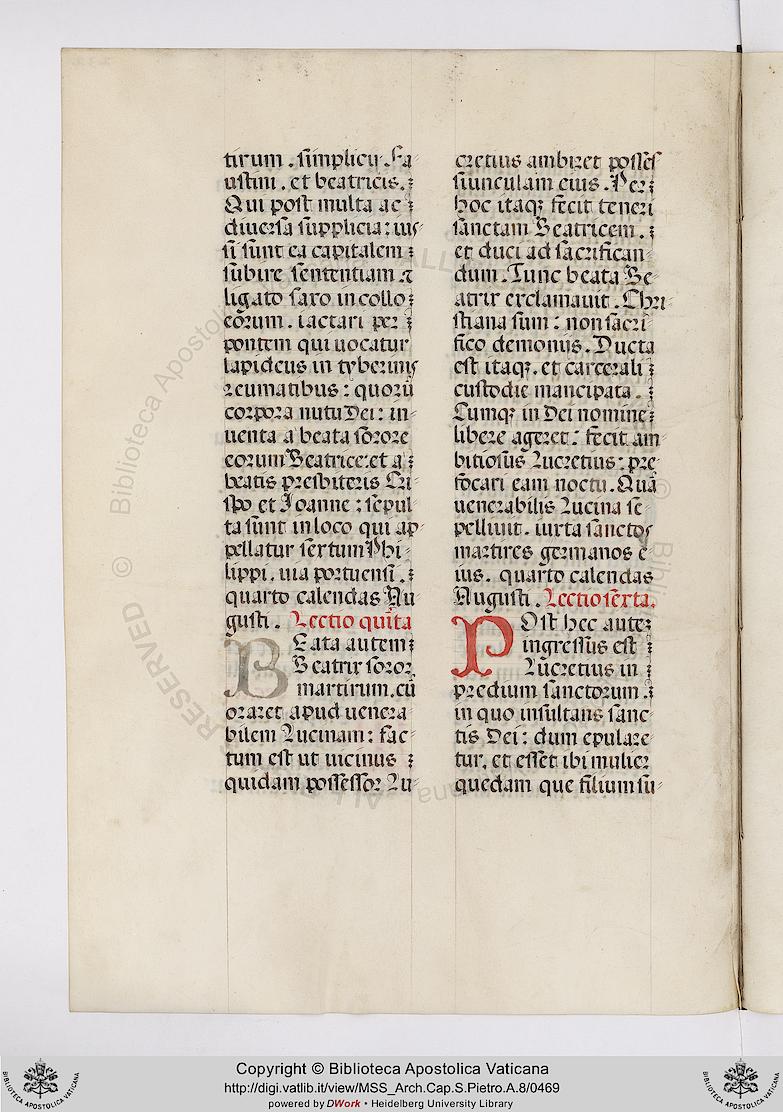 tirum . simplicii . Fa
ustini . et beatricis .
Qui post multa ac
diuersa supplicia : ius
si sunt ea capitalem
subire sententiam . ⁊
ligato saxo in collo
eorum . iactari per
pontem qui uocatur
lapideus in tyberinis
reumatibus : quorū
corpora nutu Dei : in
uenta a beata sorore
eorum Beatrice : et a
beatis presbiteris Cri
spo et Joanne : sepul
ta sunt in loco qui ap
pellatur sextum Phi
lippi . uia portuensi .
quarto calendas Au
gusti . Lectio quīta
BEata autem
Beatrix soror
martirum . cū
oraret apud uenera
bilem Lucinam : fac
tum est ut uicinus
quidam possessor Lu
cretius ambiret posses
siunculam eius . Per
hoc itaqꝫ fecit teneri
sanctam Beatricem .
et duci ad sacrifican
dum . Tunc beata Be
atrix exclamauit . Chri
stiana sum : non sacri
fico demoniis . Ducta
est itaqꝫ . et carcerali
custodie mancipata .
Cumqꝫ in Dei nomine
libere ageret : fecit am
bitiosus Lucretius : pre
focari eam noctu . Quā
uenerabilis Lucina se
pelliuit . iuxta sanctos
martires germanos e
ius . quarto calendas
Augusti . Lectio sexta .
POst hec aute
ingressus est
Lucretius in
predium sanctorum .
in quo insultans sanc
tis Dei : dum epulare
tur , et esset ibi mulier
quedam que filium su
© Biblioteca Apostolica Vaticana ALL RIGHTS RESERVED
Copyright © Biblioteca Apostolica Vaticana
http://digi.vatlib.it/view/MSS_Arch.Cap.S.Pietro.A.8/0469
powered by DWork • Heidelberg University Library
BIBLIOTECA APOSTOLICA VATICANA
BIBLIOTECA APOSTOLICA VATICANA